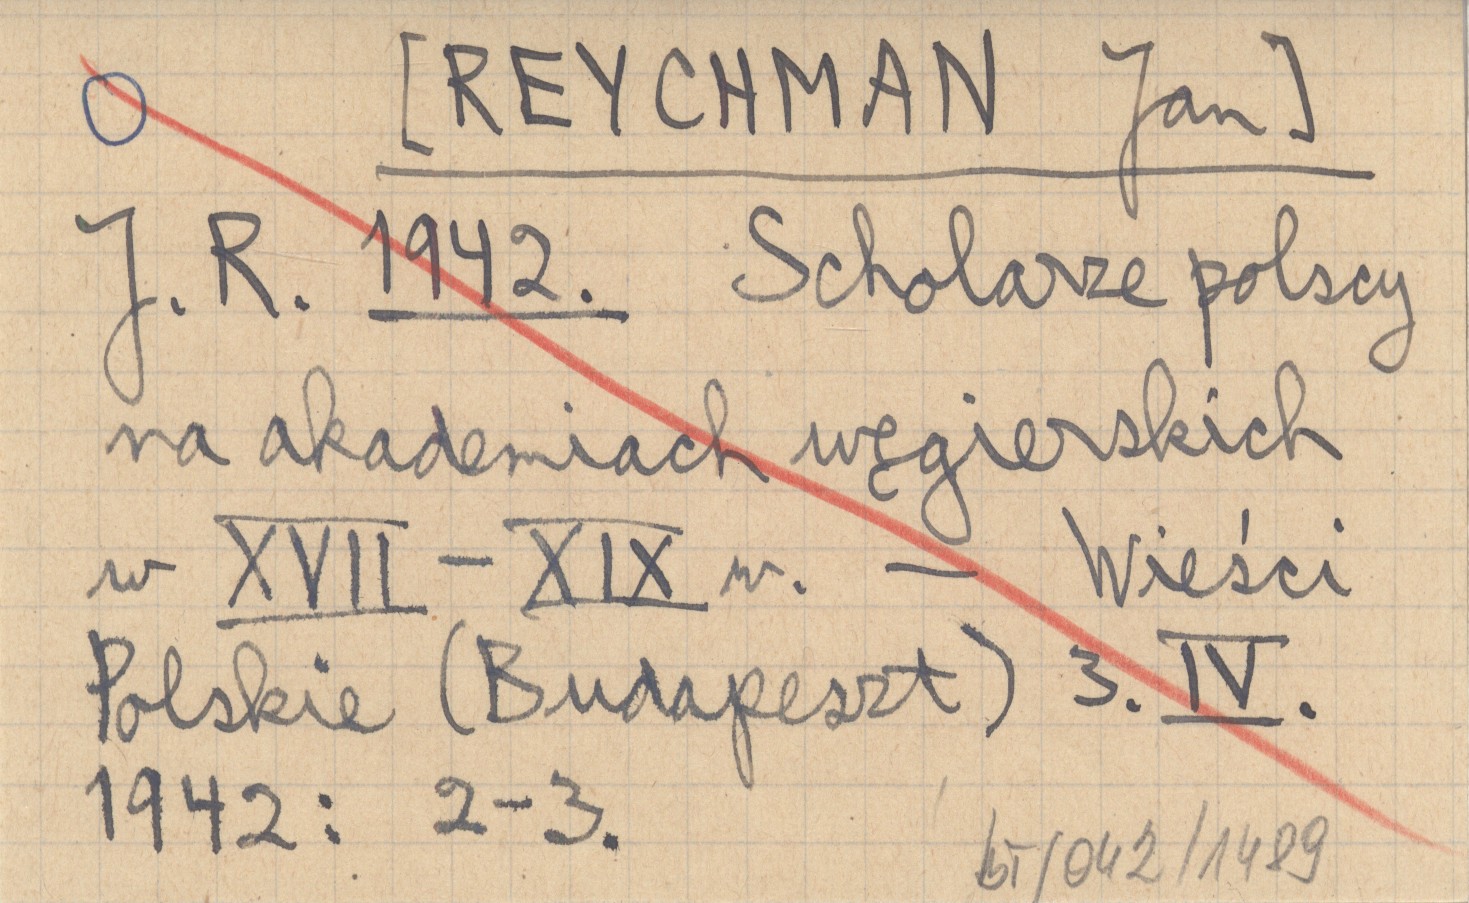 [REYCHMAN Jan]
J. R. 1942. Scholarze polscy
na akademiach węgierskich
w XVII – XIX w. — Wieści
Polskie (Budapeszt) 3. IV.
1942: 2-3.
/042/1489